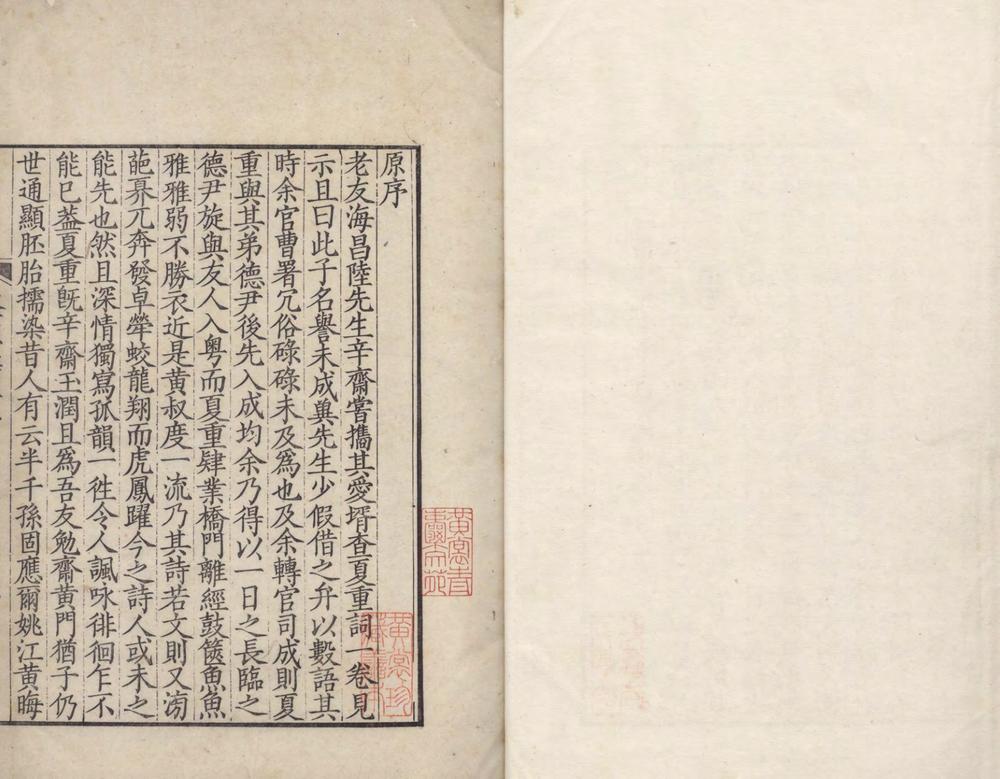 原序
老友海昌陸先生辛齋嘗攜其愛壻查夏重詞一卷見
示且曰此子名譽未成兾先生少假借之弁以數語其
時余官曹署冗俗碌碌未及爲也及余轉官司成則夏
重與其弟德尹後先入成均余乃得以一日之長臨之
德尹旋與友人入粤而夏重肄業橋門離經鼓篋魚魚
雅雅弱不勝衣近是黄叔度一流乃其詩若文則又滂
葩奡兀奔發卓犖蛟龍翔而虎鳳躍今之詩人或未之
能先也然且深情獨寫孤韻一徃令人諷咏徘徊乍不
能已葢夏重旣辛齋玉潤且爲吾友勉齋黄門猶子仍
世通顯胚胎擩染昔人有云半千孫固應爾姚江黄晦